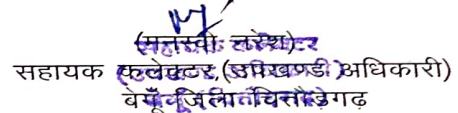 (मनस्वी नरेश)
सहायक कलेक्टर, (उपखण्ड अधिकारी)
बेगूँ जिला चित्तौड़गढ़